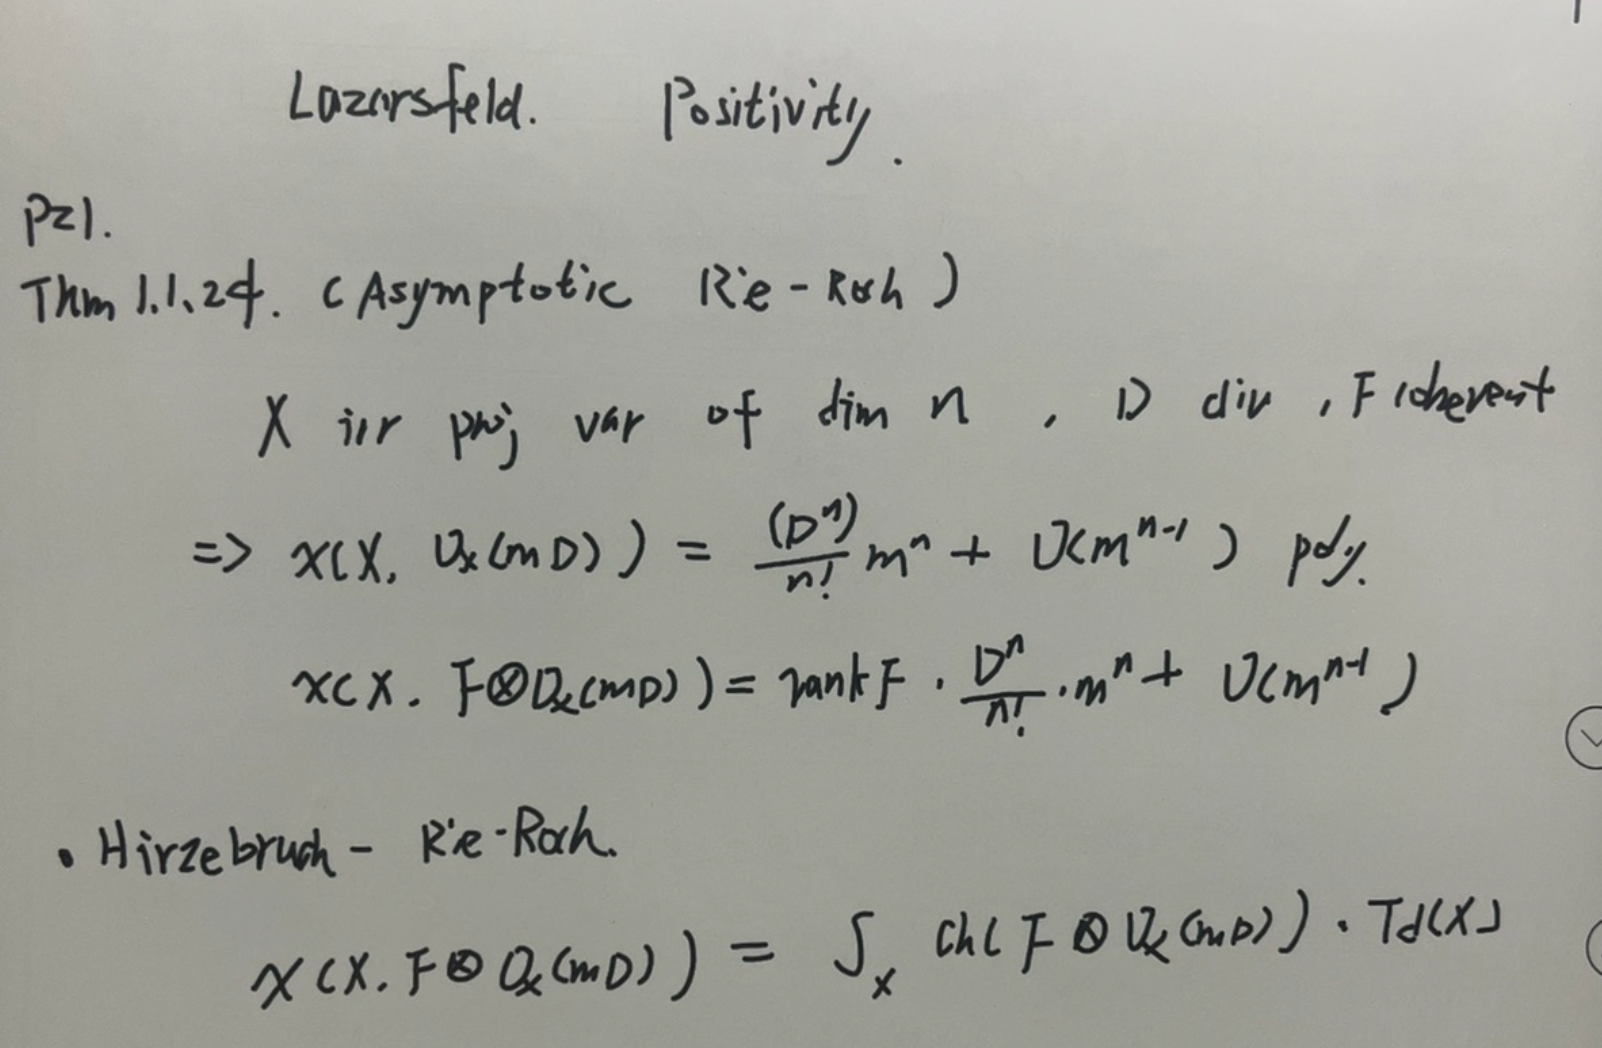 Lazarsfeld. Positivity.
P21.
Thm 1.1.24. (Asymptotic Rie-Roch)
X irr proj var of dim n, D div, F coherent
=> χ(X, O_X(mD)) = (D^n)/n! m^n + O(m^{n-1}) poly.
χ(X, F⊗O_X(mD)) = rank F · D^n/n! · m^n + O(m^{n-1})
• Hirzebruch - Rie-Roch.
χ(X, F⊗O_X(mD)) = ∫_X Ch(F⊗O_X(mD)) · Td(X)